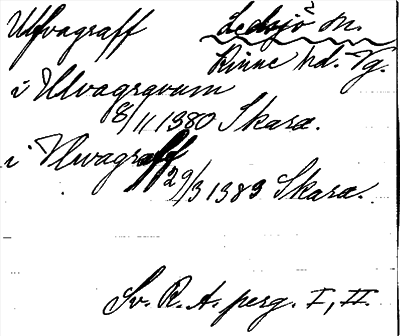 Ulfvagraff Ledsjö sn.
Kinne hd. Vg.
i Ulvagravum
8/11 1380 Skara.
i Vlwagraff
29/3 1383 Skara.
Sv. R. A. perg. I, II.